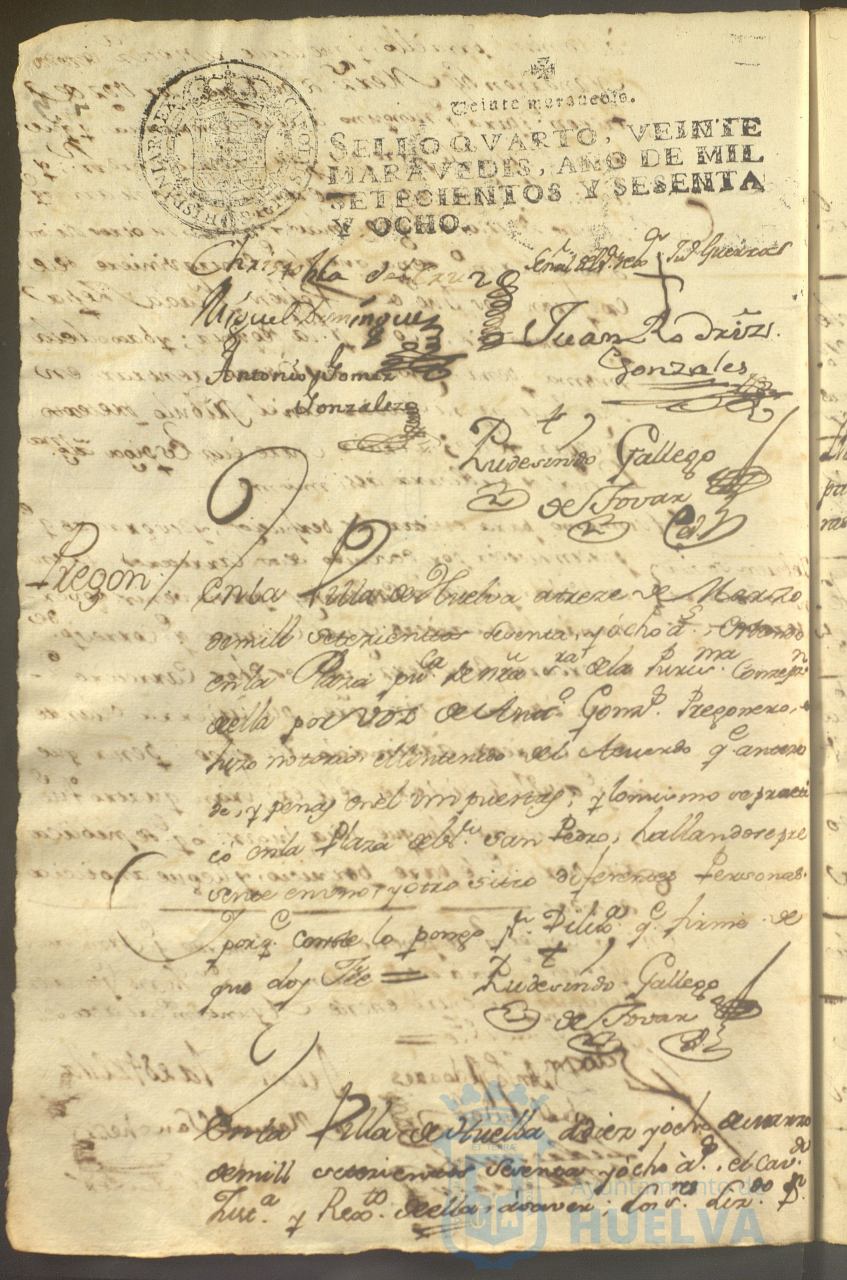 Veinte maravedis.
SELLO QVARTO, VEINTE
MARAVEDIS, AÑO DE MIL
SETECIENTOS Y SESENTA
Y OCHO.
Christobal de la Cruz
Señal del Sr. Rexor Ju. Guerras
Miguel Dominguez
Juan Rodrigz.
Antonio Gomez
Gonzales
Gonzalez
Rudesindo Gallego
de Tovar
Pregon /
En la Villa de Huelva a treze de Marzo
de mill setezientos sesenta, y ócho as. estando
en la Plaza puca. de nra. ra. de la Puris.ma Conzepn.
de ella por voz de Anto. Gonz. Pregonero,
hizo notorio el contenido del Acuerdo qe. anteze
de, y penas en el ympuestas, y lo mismo se practi
có en la Plaza de Sr. San Pedro, hallandose pre
sente en uno, y otro sitio diferentes Personas.
Y porqe. conste lo pongo pr. Dilixa. qe. firmé de
que doy Fée =
Rudesindo Gallego
de Tovar
En la Villa de Huelba a diez y ócho de marzo
de mill setezientos sesenta y ócho as. el Cav.do
Justa. y Rexto. de ella, a saver; los sres. Liz.do Dn.
Ayuntamiento de
HUELVA